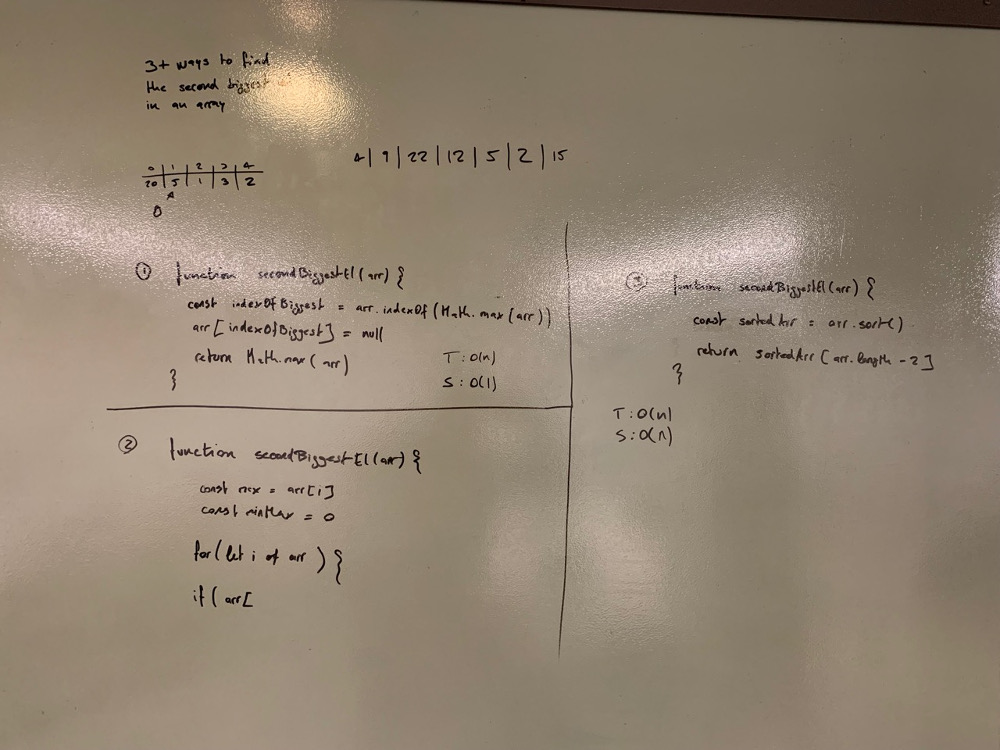 3+ ways to find
the second biggest el
in an array
0 | 1 | 2 | 3 | 4
20 | 5 | 1 | 3 | 2
0
4 | 9 | 22 | 12 | 5 | 2 | 15
① function secondBiggestEl(arr) {
const indexOfBiggest = arr.indexOf(Math.max(arr))
arr[indexOfBiggest] = null
return Math.max(arr)
}
T: O(n)
S: O(1)
② function secondBiggestEl(arr) {
const max = arr[i]
const minMax = 0
for(let i of arr) {
if( arr[
③ function secondBiggestEl(arr) {
const sortedArr = arr.sort()
return sortedArr[arr.length - 2]
}
T: O(n)
S: O(n)